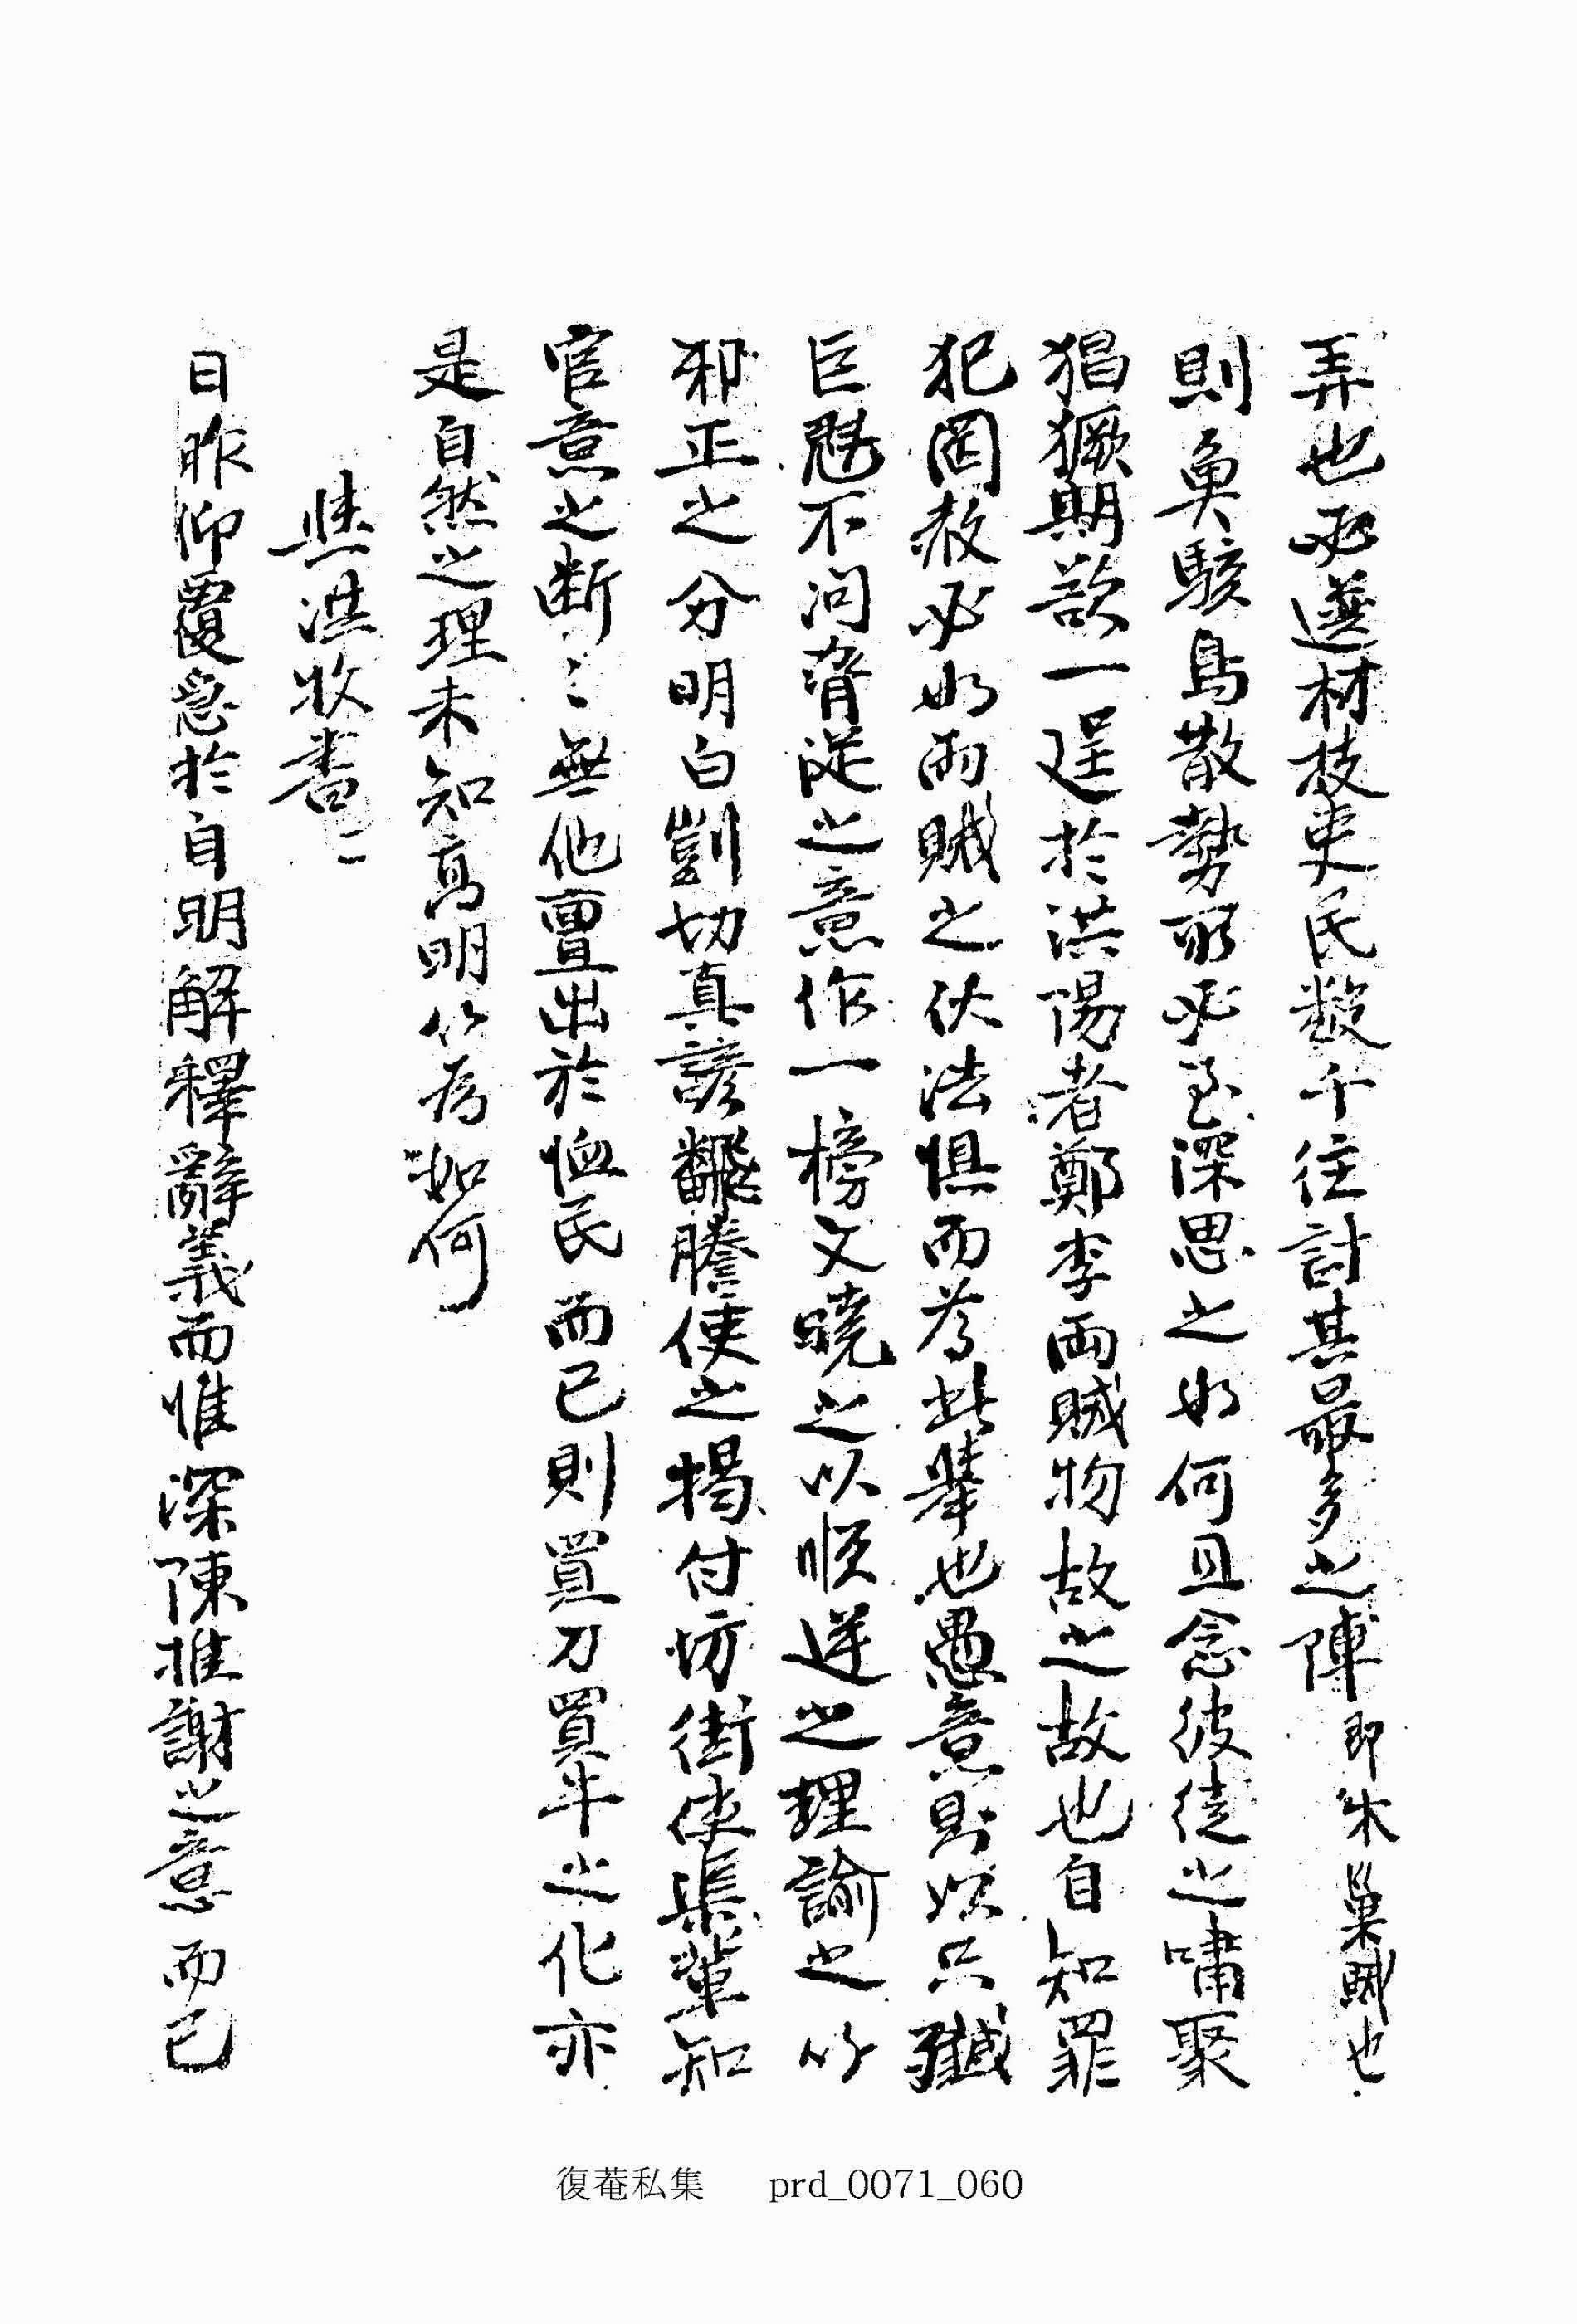 弄也必選材技吏民數千往討其最多之陣即朱巢賊也
則魚駭鳥散勢所必至深思之如何且念彼徒之嘯聚
猖獗期欲一逞於洪陽者鄭李兩賊物故之故也自知罪
犯罔赦必如兩賊之伏法惧而爲此擧也愚意則以只殲
巨魁不问脅從之意作一榜文曉之以順逆之理諭之以
邪正之分明白剴切真諺飜謄使之揭付坊街使渠輩知
官意之断〻無他亶出於恤民而已則買刀買牛之化亦
是自然之理未知高明以爲如何
與洪牧書二
日昨仰覆急於自明解釋辭義而惟深陳推謝之意而已
復菴私集 prd_0071_060